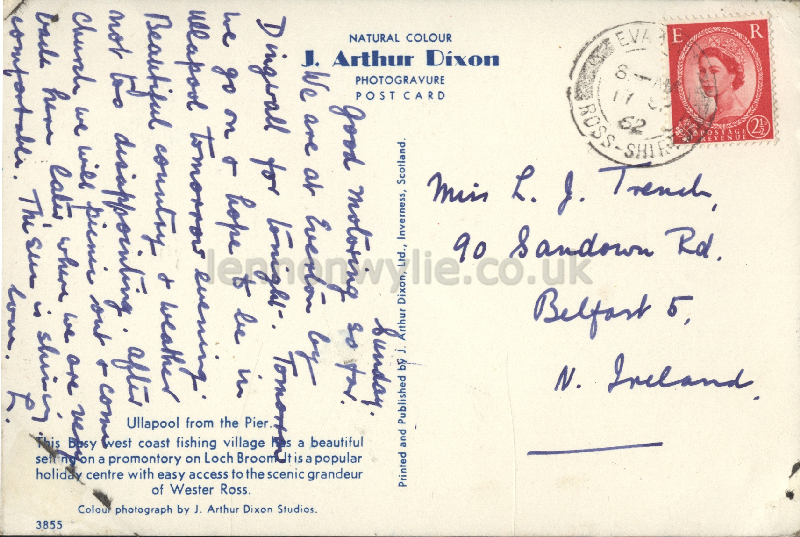 NATURAL COLOUR
J. Arthur Dixon
PHOTOGRAVURE
POST CARD
Sunday.
Good motoring so far.
We are at Evedon by
Dingwall for tonight. Tomorrow
we go on & hope to be in
Ullapool tomorrow evening.
Beautiful country & weather
not too disappointing. After
Church we will picnic out & come
back here later where we are very
comfortable. The sun is shining.
Love.
Printed and Published by J. Arthur Dixon, Ltd., Inverness, Scotland.
Ullapool from the Pier.
This Busy west coast fishing village has a beautiful
setting on a promontory on Loch Broom. It is a popular
holiday centre with easy access to the scenic grandeur
of Wester Ross.
Colour photograph by J. Arthur Dixon Studios.
3855
ROSS-SHIRE
E R
POSTAGE
REVENUE
2½
Miss L. J. Trench,
90 Sandown Rd.
Belfast 5,
N. Ireland.
lennonwylie.co.uk